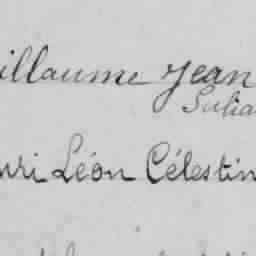 illaume Jean
Sulia
nri Léon Célestin